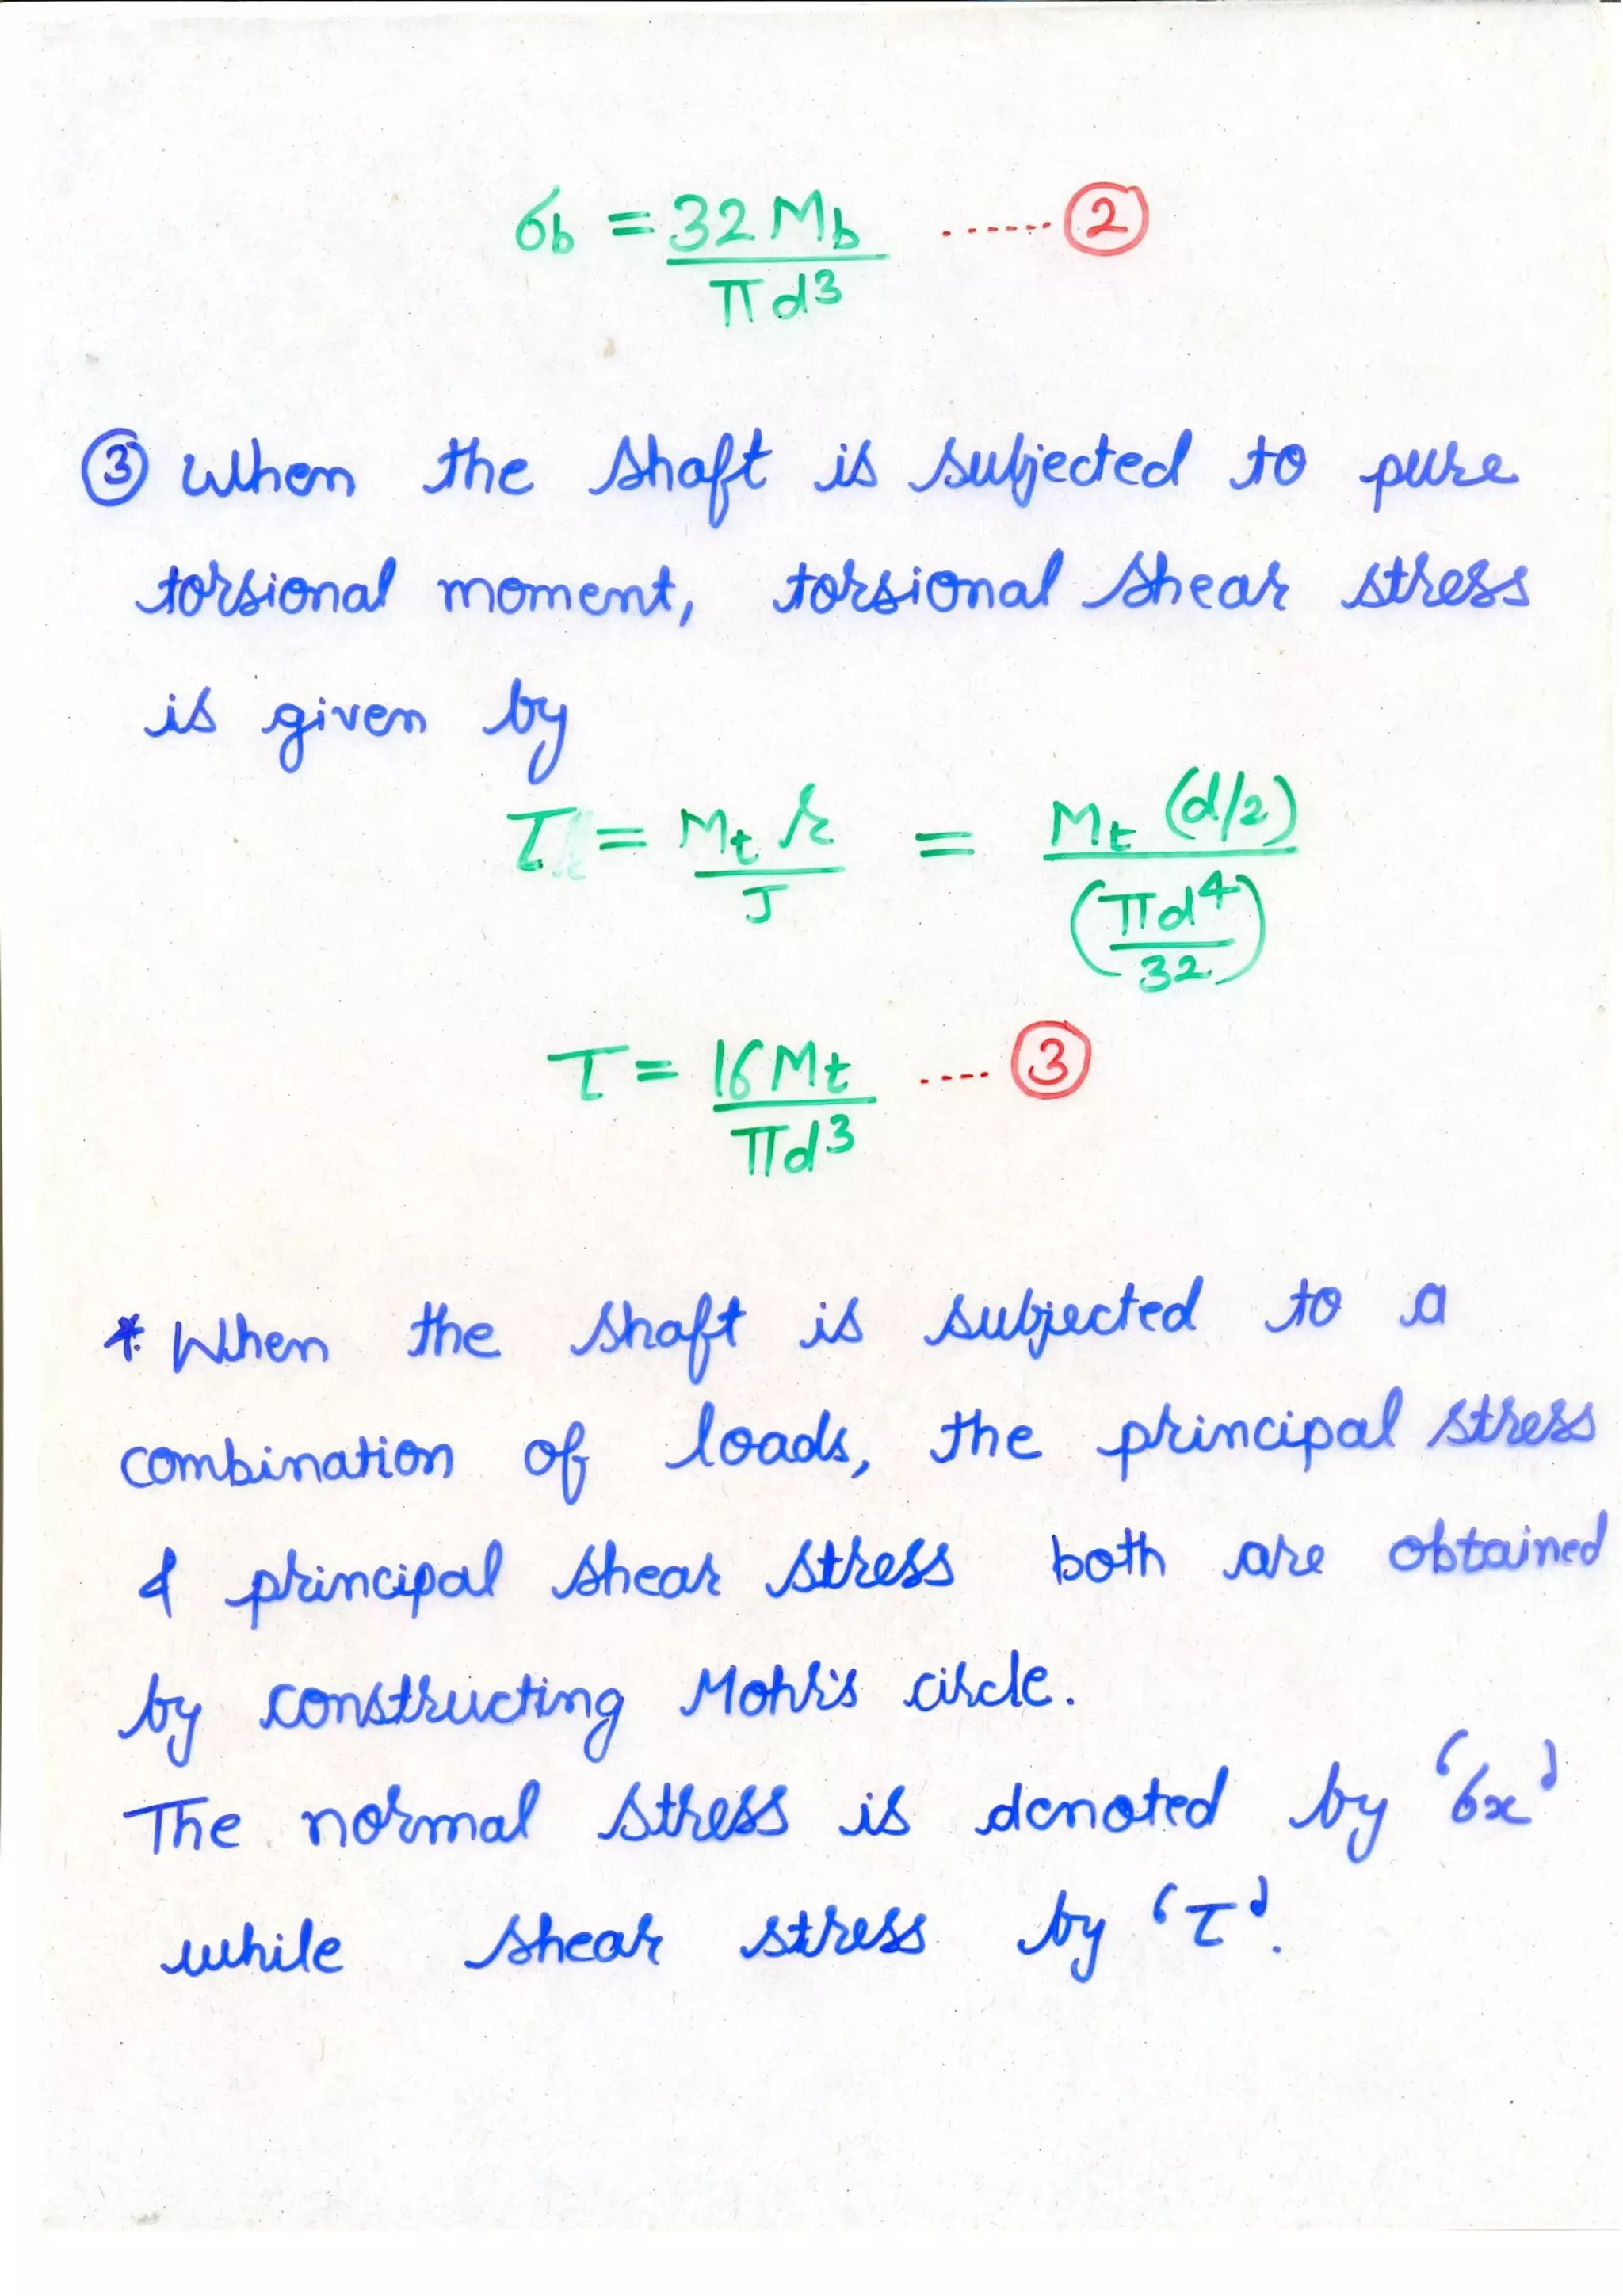 σb = 32 Mb / πd³ ...... ②
③ When the shaft is subjected to pure
torsional moment, torsional shear stress
is given by
τ = Mt r / J = Mt (d/2) / (πd⁴/32)
τ = 16 Mt / πd³ .... ③
* When the shaft is subjected to a
combination of loads, the principal stress
& principal shear stress both are obtained
by constructing Mohr's circle.
The normal stress is denoted by 'σx'
while shear stress by 'τ'.